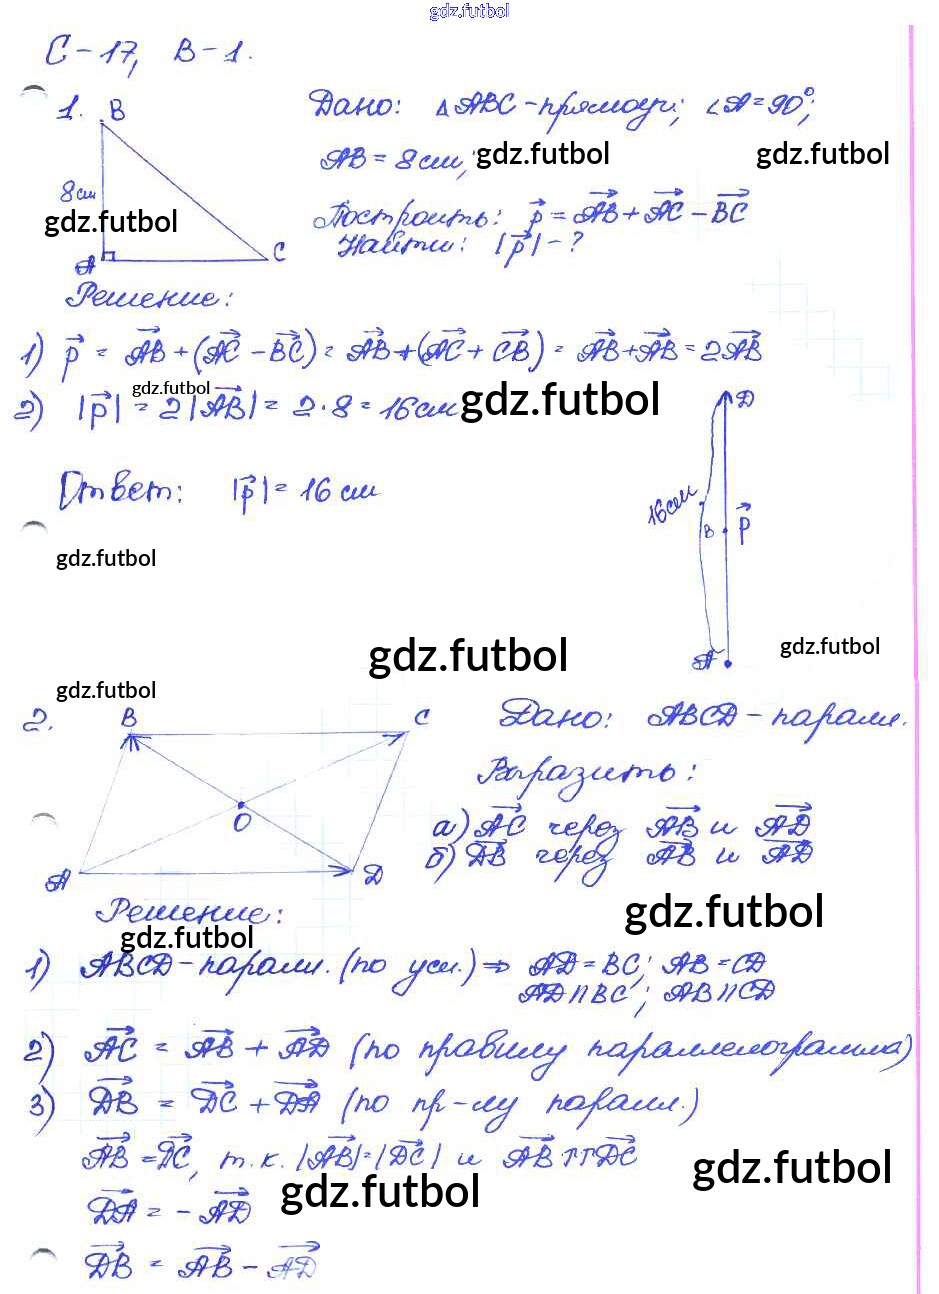 gdz.futbol
С-17, В-1.
1. B
Дано: △ABC - прямоуг; ∠A = 90°;
AB = 8 см; gdz.futbol gdz.futbol
8 см
gdz.futbol
Построить: p⃗ = AB⃗ + AC⃗ - BC⃗
Найти: |p⃗| - ?
A C
Решение:
1) p⃗ = AB⃗ + (AC⃗ - BC⃗) = AB⃗ + (AC⃗ + CB⃗) = AB⃗ + AB⃗ = 2AB⃗
gdz.futbol
2) |p⃗| = 2|AB⃗| = 2·8 = 16 см gdz.futbol
D
Ответ: |p⃗| = 16 см
16 см
B p⃗
gdz.futbol
gdz.futbol gdz.futbol
A
gdz.futbol
2. B C
Дано: ABCD - паралл.
Выразить:
O
а) AC⃗ через AB⃗ и AD⃗
б) DB⃗ через AB⃗ и AD⃗
A D
Решение: gdz.futbol
gdz.futbol
1) ABCD - паралл. (по усл.) ⇒ AD = BC; AB = CD
AD II BC; AB II CD
2) AC⃗ = AB⃗ + AD⃗ (по правилу параллелограмма)
3) DB⃗ = DC⃗ + DA⃗ (по пр-лу паралл.)
AB⃗ = DC⃗, т.к. |AB⃗| = |DC⃗| и AB⃗ ↑↑ DC⃗ gdz.futbol
gdz.futbol
DA⃗ = - AD⃗
DB⃗ = AB⃗ - AD⃗